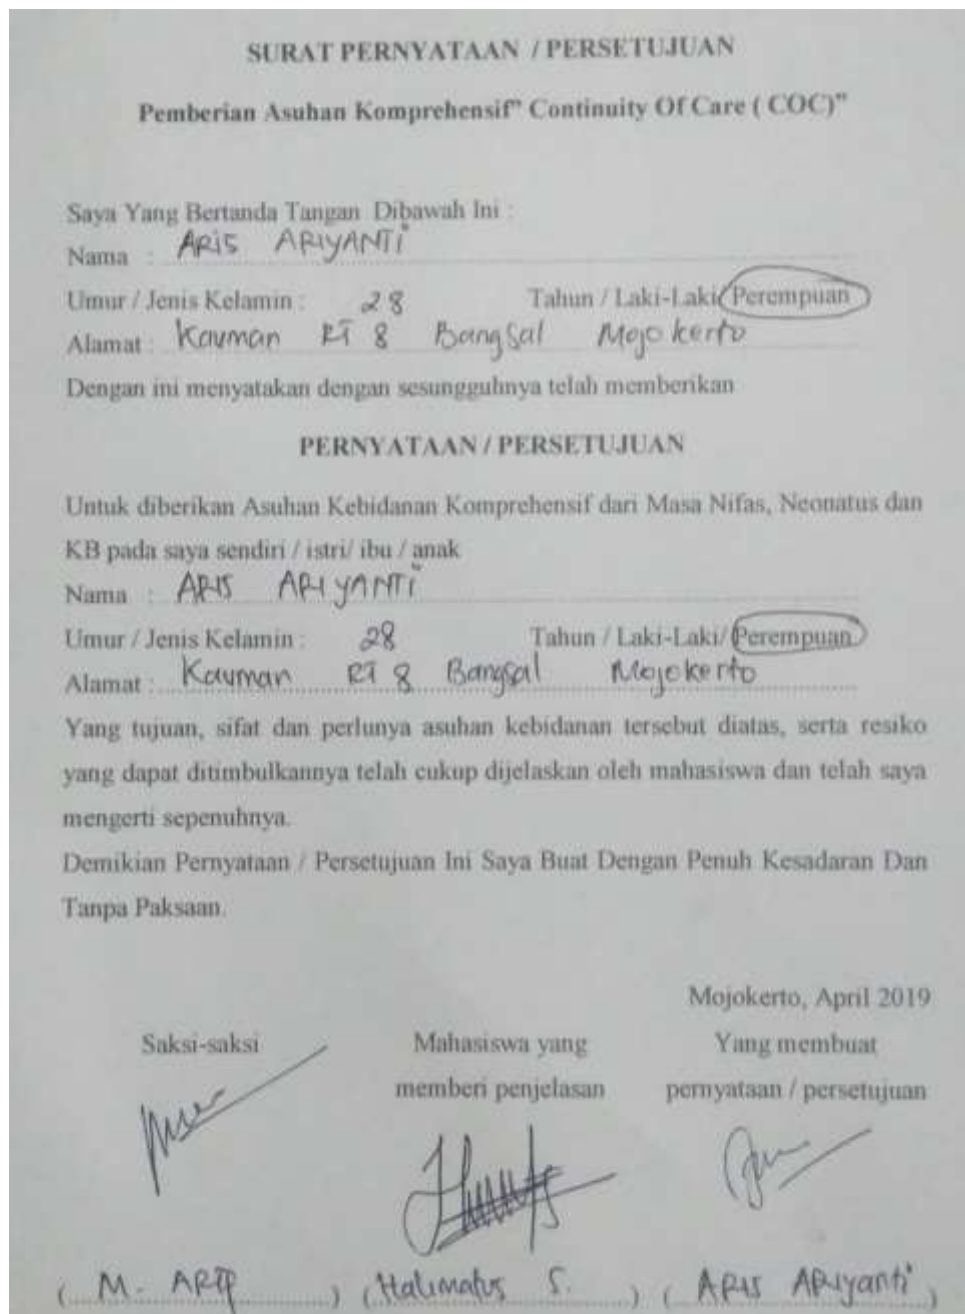 SURAT PERNYATAAN / PERSETUJUAN
Pemberian Asuhan Komprehensif" Continuity Of Care ( COC)"
Saya Yang Bertanda Tangan Dibawah Ini :
Nama : ARIS ARIYANTI
Umur / Jenis Kelamin : 28 Tahun / Laki-Laki/ Perempuan
Alamat : Kauman RT 8 Bangsal Mojokerto
Dengan ini menyatakan dengan sesungguhnya telah memberikan
PERNYATAAN / PERSETUJUAN
Untuk diberikan Asuhan Kebidanan Komprehensif dari Masa Nifas, Neonatus dan
KB pada saya sendiri / istri/ ibu / anak
Nama : ARIS ARIYANTI
Umur / Jenis Kelamin : 28 Tahun / Laki-Laki/ Perempuan
Alamat : Kauman RT 8 Bangsal Mojokerto
Yang tujuan, sifat dan perlunya asuhan kebidanan tersebut diatas, serta resiko
yang dapat ditimbulkannya telah cukup dijelaskan oleh mahasiswa dan telah saya
mengerti sepenuhnya.
Demikian Pernyataan / Persetujuan Ini Saya Buat Dengan Penuh Kesadaran Dan
Tanpa Paksaan.
Mojokerto, April 2019
Saksi-saksi Mahasiswa yang Yang membuat
memberi penjelasan pernyataan / persetujuan
( M. ARIP ) ( Halimatus S. ) ( ARIS ARiyanti )